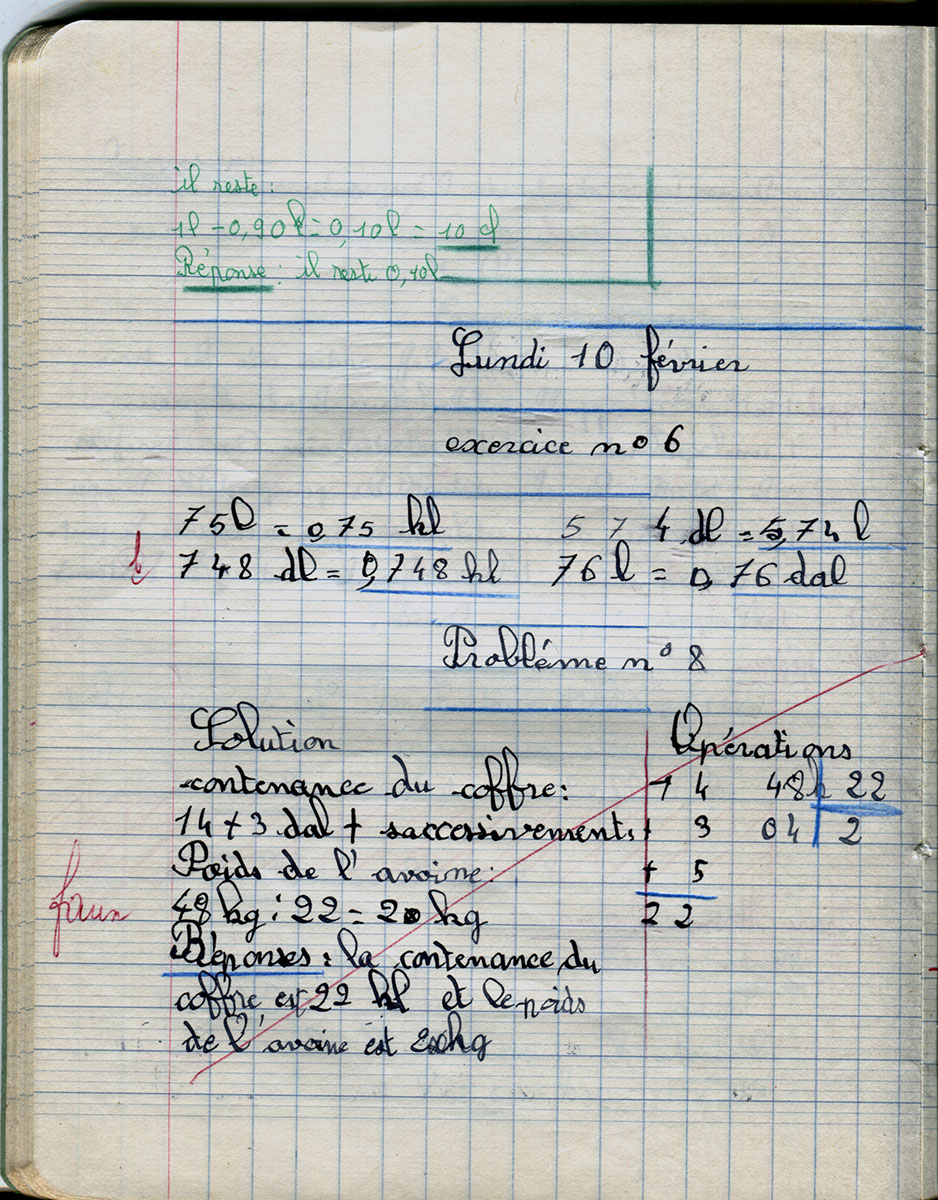 il reste :
1l - 0,90l = 0,10l = 10 cl
Réponse : il reste 0,10l
Lundi 10 février
exercice n° 6
75l = 0,75 hl 574 dl = 5,74 l
748 dl = 0,748 hl 76 l = 0,76 dal
Probléme n° 8
Solution Opérations
contenance du coffre : 14 48 22
14 + 3 dal + saccessivement + 3 04 2
Poids de l'avoine : + 5
faux 48 kg : 22 = 20 kg 22
Réponses : la contenance du
coffre est 22 hl et le poids
de l'avoine est 20kg